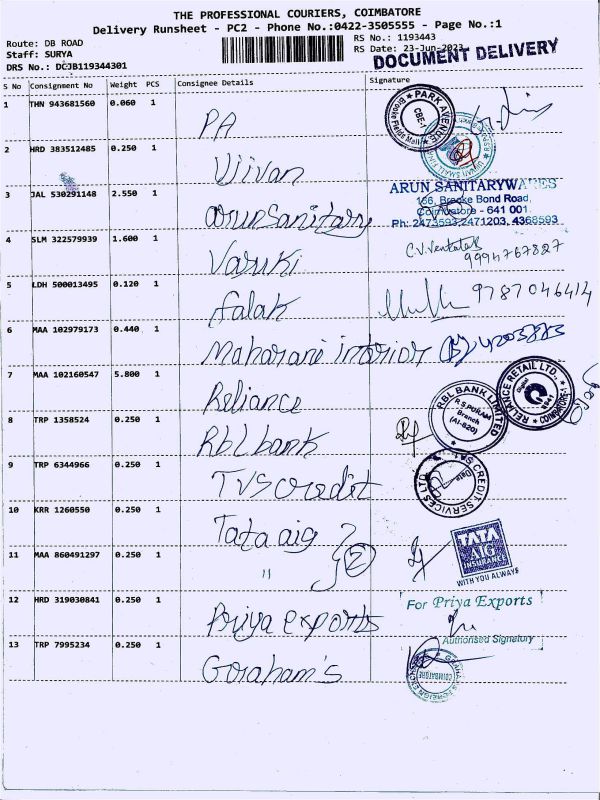 THE PROFESSIONAL COURIERS, COIMBATORE
Delivery Runsheet - PC2 - Phone No.:0422-3505555 - Page No.:1
Route: DB ROAD
RS No.: 1193443
Staff: SURYA
RS Date: 23-Jun-2023
DRS No.: DCJB119344301
DOCUMENT DELIVERY
S No Consignment No Weight PCS Consignee Details Signature
1 THN 943681560 0.060 1 PA
PARK AVENUE
CBE-1
Brooke Fields Mall
2 HRD 383512485 0.250 1 Viivan
3 JAL 530291148 2.550 1 arun Sanitary
ARUN SANITARYWARES
156, Brooke Bond Road,
Coimbatore - 641 001.
Ph: 2473593,2471203, 4368593
4 SLM 322579939 1.600 1 Varuki
9994767827
5 LDH 500013495 0.120 1 falak
9787046414
6 MAA 102979173 0.440 1 Maharani interior
7 MAA 102160547 5.800 1 Reliance
RELIANCE RETAIL LTD.,
Digital
COIMBATORE-1
8 TRP 1358524 0.250 1 Rbl bank
RBL BANK LIMITED
R.S.PURAM
Branch
(AI-820)
9 TRP 6344966 0.250 1 TVS credit
CREDIT SERVICES LTD
Date
10 KRR 1260550 0.250 1 Tata aig
TATA
AIG
INSURANCE
WITH YOU ALWAYS
11 MAA 860491297 0.250 1 " 2
12 HRD 319030841 0.250 1 Priya exports
For Priya Exports
Authorised Signatory
13 TRP 7995234 0.250 1 Goraham's
COIMBATORE